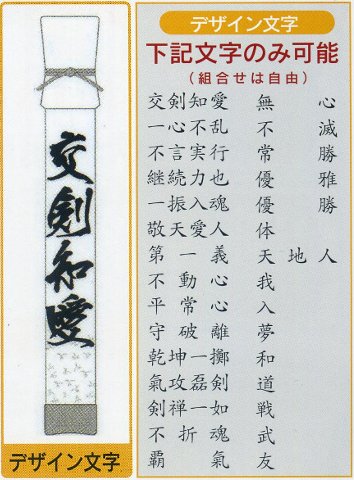 交剣知愛
デザイン文字
デザイン文字
下記文字のみ可能
(組合せは自由)
交剣知愛 無心
一心不乱 不滅
不言実行 常勝
継続力也 優雅
一振入魂 優勝
敬天愛人 体
第一義 天地人
不動心 我
平常心 入
守破離 夢
乾坤一擲 和
氣攻磊剣 道
剣禅一如 戦
不折魂 武
覇氣 友